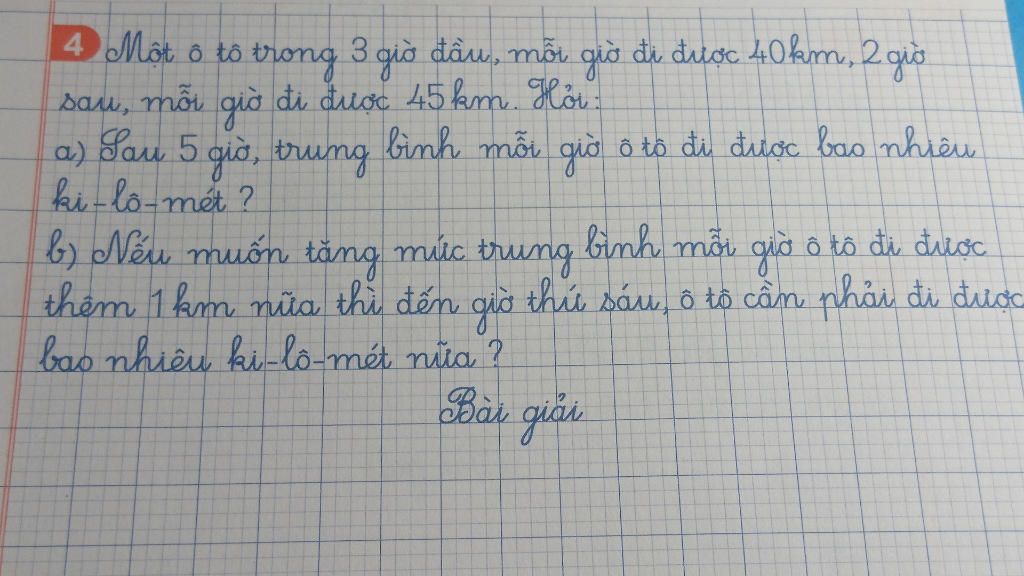 4 Một ô tô trong 3 giờ đầu, mỗi giờ đi được 40km, 2 giờ
sau, mỗi giờ đi được 45km. Hỏi:
a) Sau 5 giờ, trung bình mỗi giờ ô tô đi được bao nhiêu
ki-lô-mét?
b) Nếu muốn tăng mức trung bình mỗi giờ ô tô đi được
thêm 1km nữa thì đến giờ thứ sáu, ô tô cần phải đi được
bao nhiêu ki-lô-mét nữa?
Bài giải